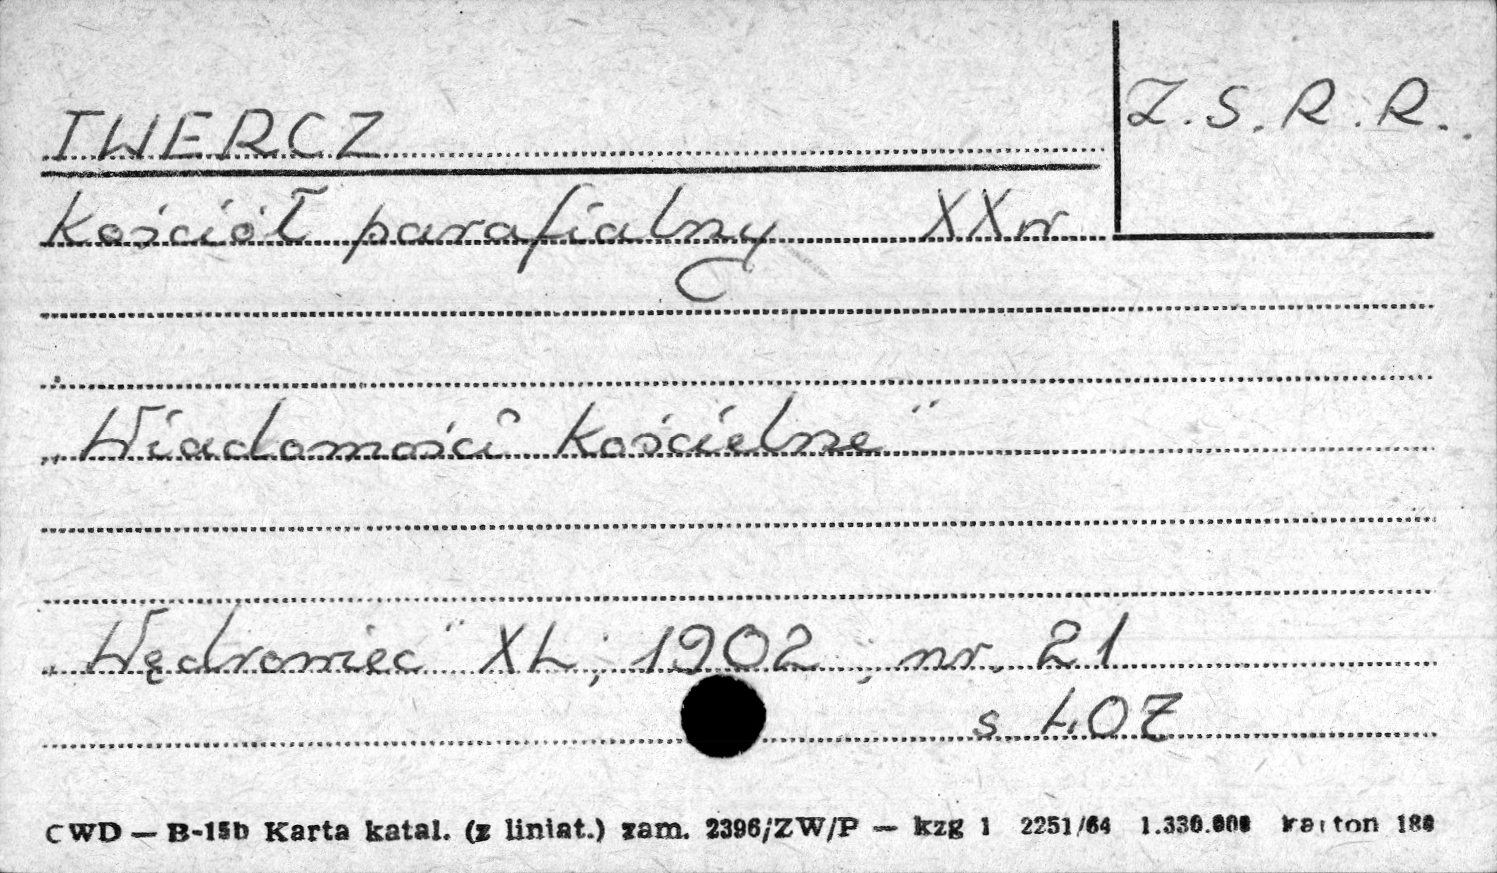 TWERCZ
Z.S.R.R.
kościół parafialny XX w
„Wiadomości Kościelne"
„Wędrowiec" XL; 1902; nr. 21
s. 407
CWD — B-15b Karta katal. (z liniat.) zam. 2396/ZW/P — kzg 1 2251/64 1.330.000 karton 180